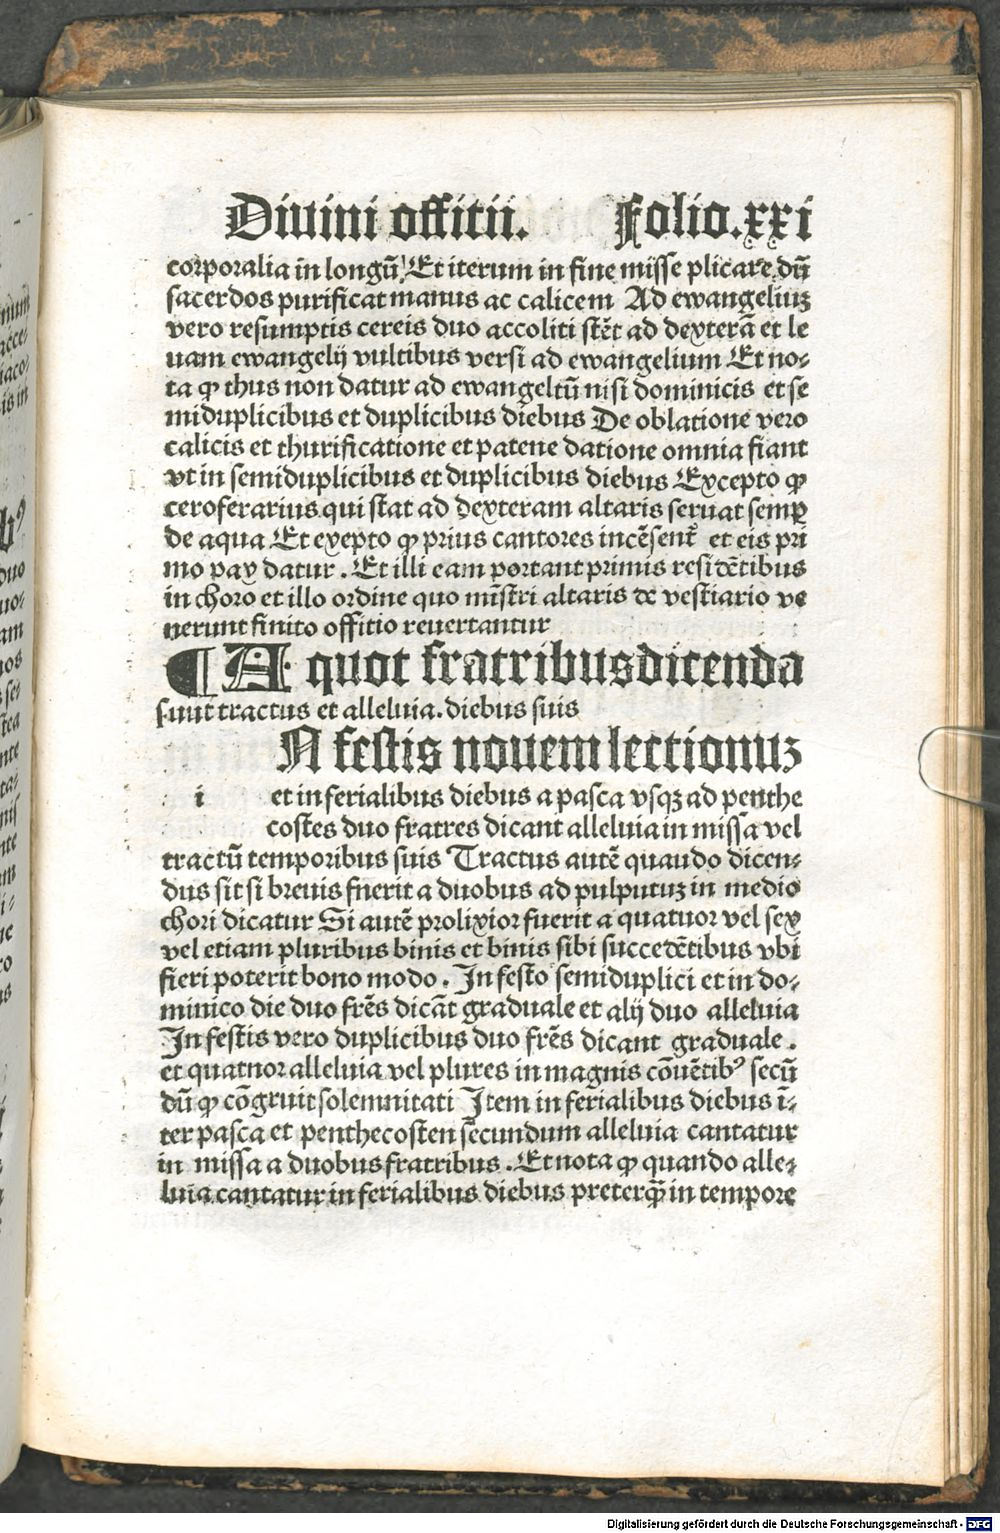 Diuini offitii. Folio.xxi
corporalia in longū. Et iterum in fine misse plicare. dū
sacerdos purificat manus ac calicem Ad ewangeliuꝫ
vero resumptis cereis duo accoliti stēt ad dexterā et le
uam ewangelij vultibus versi ad ewangelium Et no⸗
ta ꝙ thus non datur ad ewangeltū nisi dominicis et se
miduplicibus et duplicibus diebus De oblatione vero
calicis et thurificatione et patene datione omnia fiant
vt in semiduplicibus et duplicibus diebus Excepto ꝙ
ceroferarius. qui stat ad dexteram altaris seruat semꝑ
de aqua Et exepto ꝙ prius cantores incēsent᷑ et eis pri
mo pax datur. Et illi eam portant primis resi dētibus
in choro et illo ordine quo mīstri altaris de vestiario ve
nerunt finito offitio reuertantur
¶ A quot fratribus dicenda
sunt tractus et alleluia. diebus suis
N festis nouem lectionuꝫ
i et in ferialibus diebus a pasca vsqꝫ ad penthe
costes duo fratres dicant alleluia in missa vel
tractū temporibus suis Tractus autē quaudo dicen⸗
dus sit si breuis fnerit a duobus ad pulputuꝫ in medio
chori dicatur Si autē prolixior fuerit a quatuor vel sex
vel etiam pluribus binis et binis sibi succedētibus vbi
fieri poterit bono modo. In festo semiduplici et in do⸗
minico die duo frēs dicāt graduale et alij duo alleluia
In festis vero duplicibus duo frēs dicant graduale.
et quatnor alleluia vel plures in magnis cōuētibꝰ secū
dū ꝙ cōgruit solemnitati Item in ferialibus diebus ī⸗
ter pasca et penthecosten secundum alleluia cantatur
in missa a duobus fratribus. Et nota ꝙ quando alle⸗
luia cantatur in ferialibus diebus preterꝙ̄ in tempore
Digitalisierung gefördert durch die Deutsche Forschungsgemeinschaft - DFG